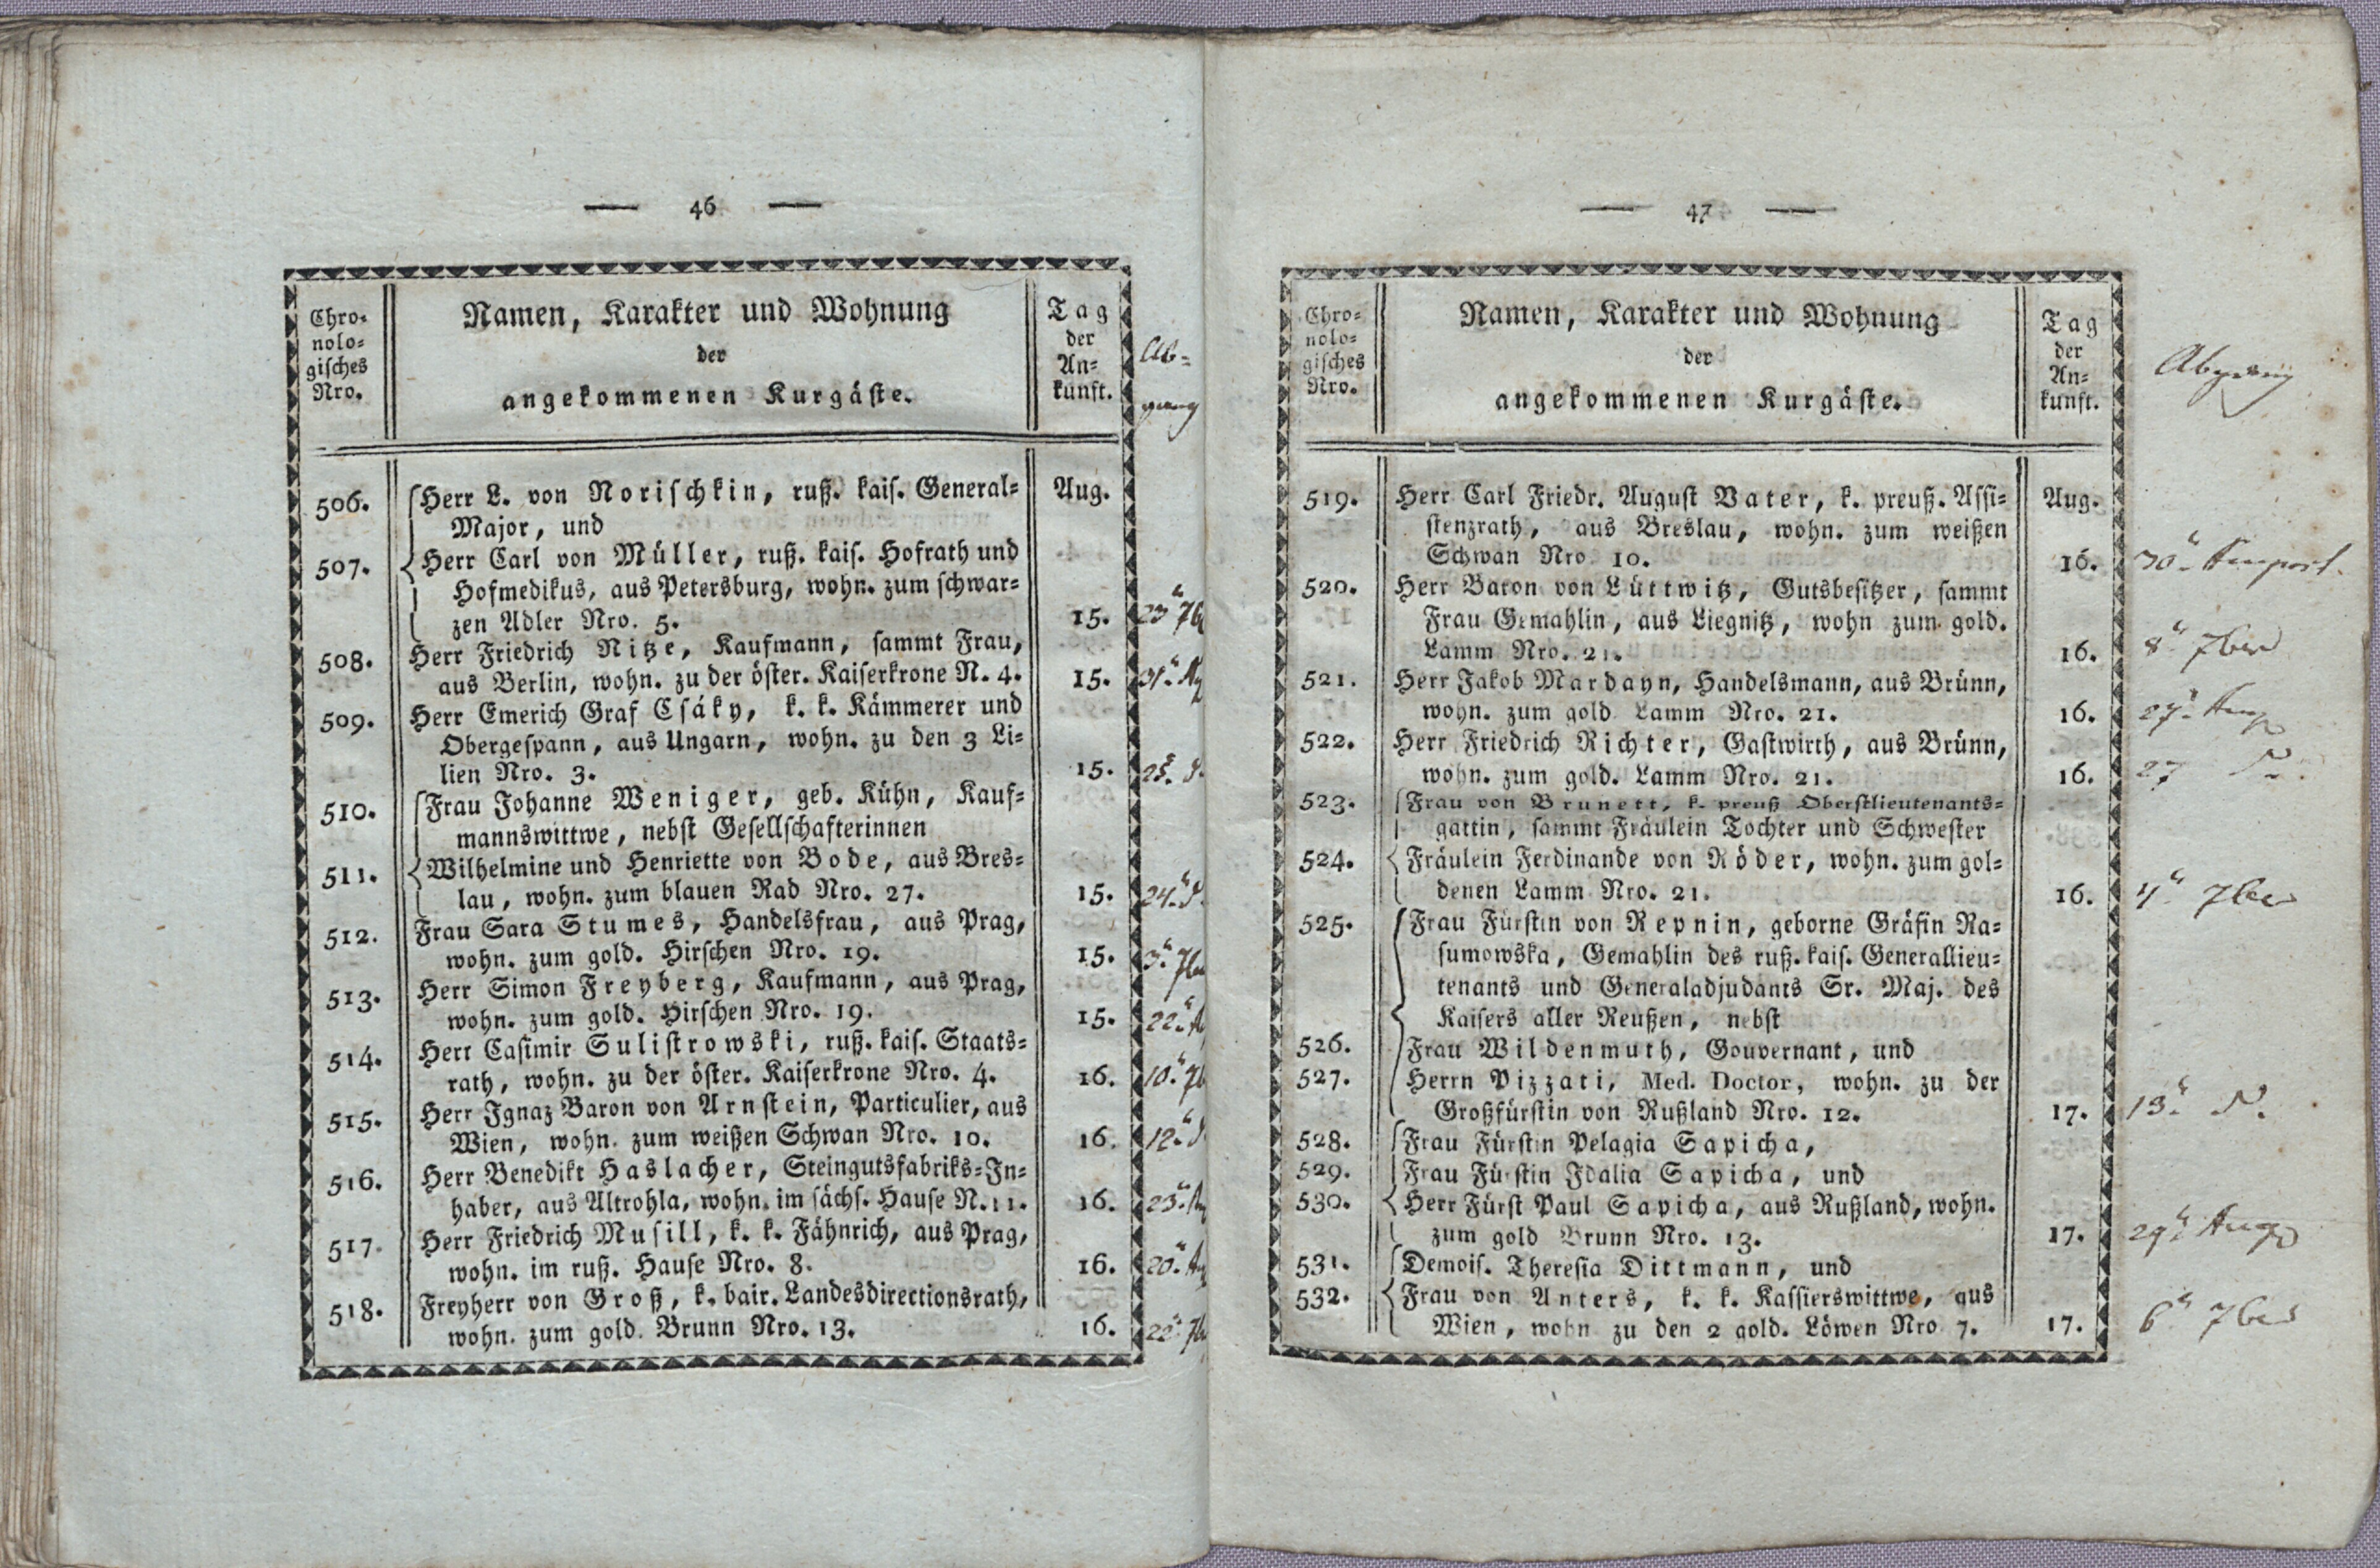 — 46 —
Chro-
nolo-
gisches
Nro.
Namen, Karakter und Wohnung
der
angekommenen Kurgäste.
Tag
der
An-
kunft.
Ab-
gang
506. Herr L. von Norischkin, ruß. kais. General- Aug.
Major, und
507. Herr Carl von Müller, ruß. kais. Hofrath und
Hofmedikus, aus Petersburg, wohn. zum schwar-
zen Adler Nro. 5. 15. 23
508. Herr Friedrich Nitze, Kaufmann, sammt Frau,
aus Berlin, wohn. zu der öster. Kaiserkrone N. 4. 15. 31
509. Herr Emerich Graf Csáky, k. k. Kämmerer und
Obergespann, aus Ungarn, wohn. zu den 3 Li-
lien Nro. 3. 15. 25
510. Frau Johanne Weniger, geb. Kühn, Kauf-
mannswittwe, nebst Gesellschafterinnen
511. Wilhelmine und Henriette von Bode, aus Bres-
lau, wohn. zum blauen Rad Nro. 27. 15. 24
512. Frau Sara Stumes, Handelsfrau, aus Prag,
wohn. zum gold. Hirschen Nro. 19. 15. 3
513. Herr Simon Freyberg, Kaufmann, aus Prag,
wohn. zum gold. Hirschen Nro. 19. 15. 22
514. Herr Casimir Sulistrowski, ruß. kais. Staats-
rath, wohn. zu der öster. Kaiserkrone Nro. 4. 16. 10
515. Herr Ignaz Baron von Arnstein, Particulier, aus
Wien, wohn. zum weißen Schwan Nro. 10. 16. 12
516. Herr Benedikt Haslacher, Steingutsfabriks-In-
haber, aus Altrohla, wohn. im sächs. Hause N. 11. 16. 23
517. Herr Friedrich Musill, k. k. Fähnrich, aus Prag,
wohn. im ruß. Hause Nro. 8. 16. 20
518. Freyherr von Groß, k. bair. Landesdirectionsrath,
wohn. zum gold. Brunn Nro. 13. 16. 22
— 47 —
Chro-
nolo-
gisches
Nro.
Namen, Karakter und Wohnung
der
angekommenen Kurgäste.
Tag
der
An-
kunft.
Abgang
519. Herr Carl Friedr. August Vater, k. preuß. Assi- Aug.
stenzrath, aus Breslau, wohn. zum weißen
Schwan Nro 10. 16. 30
520. Herr Baron von Lüttwitz, Gutsbesitzer, sammt
Frau Gemahlin, aus Liegnitz, wohn zum gold.
Lamm Nro. 21. 16. 8 7ber
521. Herr Jakob Mardayn, Handelsmann, aus Brünn,
wohn. zum gold Lamm Nro. 21. 16. 27 Aug
522. Herr Friedrich Richter, Gastwirth, aus Brünn,
wohn. zum gold. Lamm Nro. 21. 16. 27
523. Frau von Brunett, k. preuß Oberstlieutenants-
gattin, sammt Fräulein Tochter und Schwester
524. Fräulein Ferdinande von Röder, wohn. zum gol-
denen Lamm Nro. 21. 16. 4 7ber
525. Frau Fürstin von Repnin, geborne Gräfin Ra-
sumowska, Gemahlin des ruß. kais. Generallieu-
tenants und Generaladjudants Sr. Maj. des
Kaisers aller Reußen, nebst
526. Frau Wildenmuth, Gouvernant, und
527. Herrn Pizzati, Med. Doctor, wohn. zu der
Großfürstin von Rußland Nro. 12. 17. 13
528. Frau Fürstin Pelagia Sapicha,
529. Frau Fürstin Idalia Sapicha, und
530. Herr Fürst Paul Sapicha, aus Rußland, wohn.
zum gold Brunn Nro. 13. 17. 29 Aug
531. Demois. Theresia Dittmann, und
532. Frau von Anters, k. k. Kassierswittwe, aus
Wien, wohn zu den 2 gold. Löwen Nro 7. 17. 6 7ber